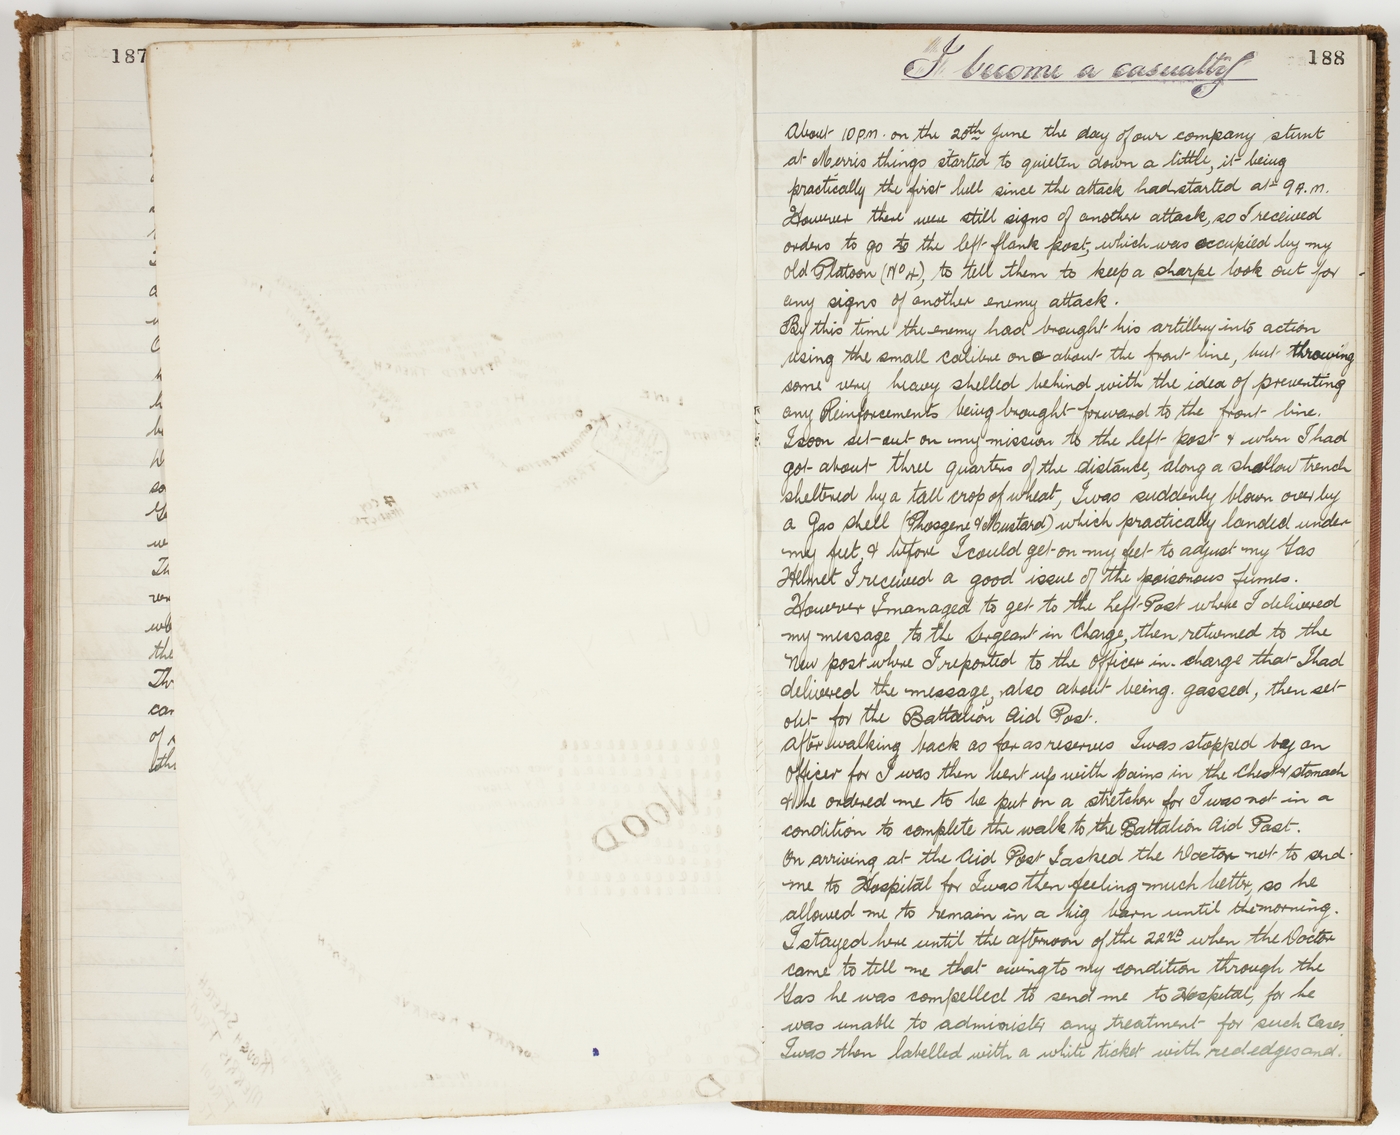 187
188
I become a casualty
About 10 p.m. on the 20th June the day of our company stunt
at Merris things started to quieten down a little, it being
practically the first lull since the attack had started at 9 A.m.
However there were still signs of another attack, so I received
orders to go to the left flank post, which was occupied by my
old Platoon (No 4), to tell them to keep a sharpe look out for
any signs of another enemy attack.
By this time the enemy had brought his artillery into action
using the small calibre on & about the front line, but throwing
some very heavy shelled behind with the idea of preventing
any Reinforcements being brought forward to the front line.
I soon set out on my mission to the left post & when I had
got about three quarters of the distance, along a shallow trench
sheltered by a tall crop of wheat, I was suddenly blown over by
a Gas Shell (Phosgene & Mustard) which practically landed under
my feet, & before I could get on my feet to adjust my Gas
Helmet I received a good issue of the poisonous fumes.
However I managed to get to the Left Post where I delivered
my message, to the Sergeant in Charge, then returned to the
New post where I reported to the Officer in charge that I had
delivered the message, also about being gassed, then set
out for the Battalion Aid Post.
After walking back as far as reserves I was stopped by an
Officer for I was then bent up with pains in the Chest & stomach
& he ordered me to be put on a stretcher for I was not in a
condition to complete the walk to the Battalion Aid Post.
On arriving at the Aid Post I asked the Doctor not to send
me to Hospital for I was then feeling much better, so he
allowed me to remain in a big barn until the morning.
I stayed here until the afternoon of the 22nd when the Doctor
came to tell me that owing to my condition through the
Gas he was compelled to send me to Hospital, for he
was unable to administer any treatment for such Cases.
I was then labelled with a white ticket with red edges and.
WOOD